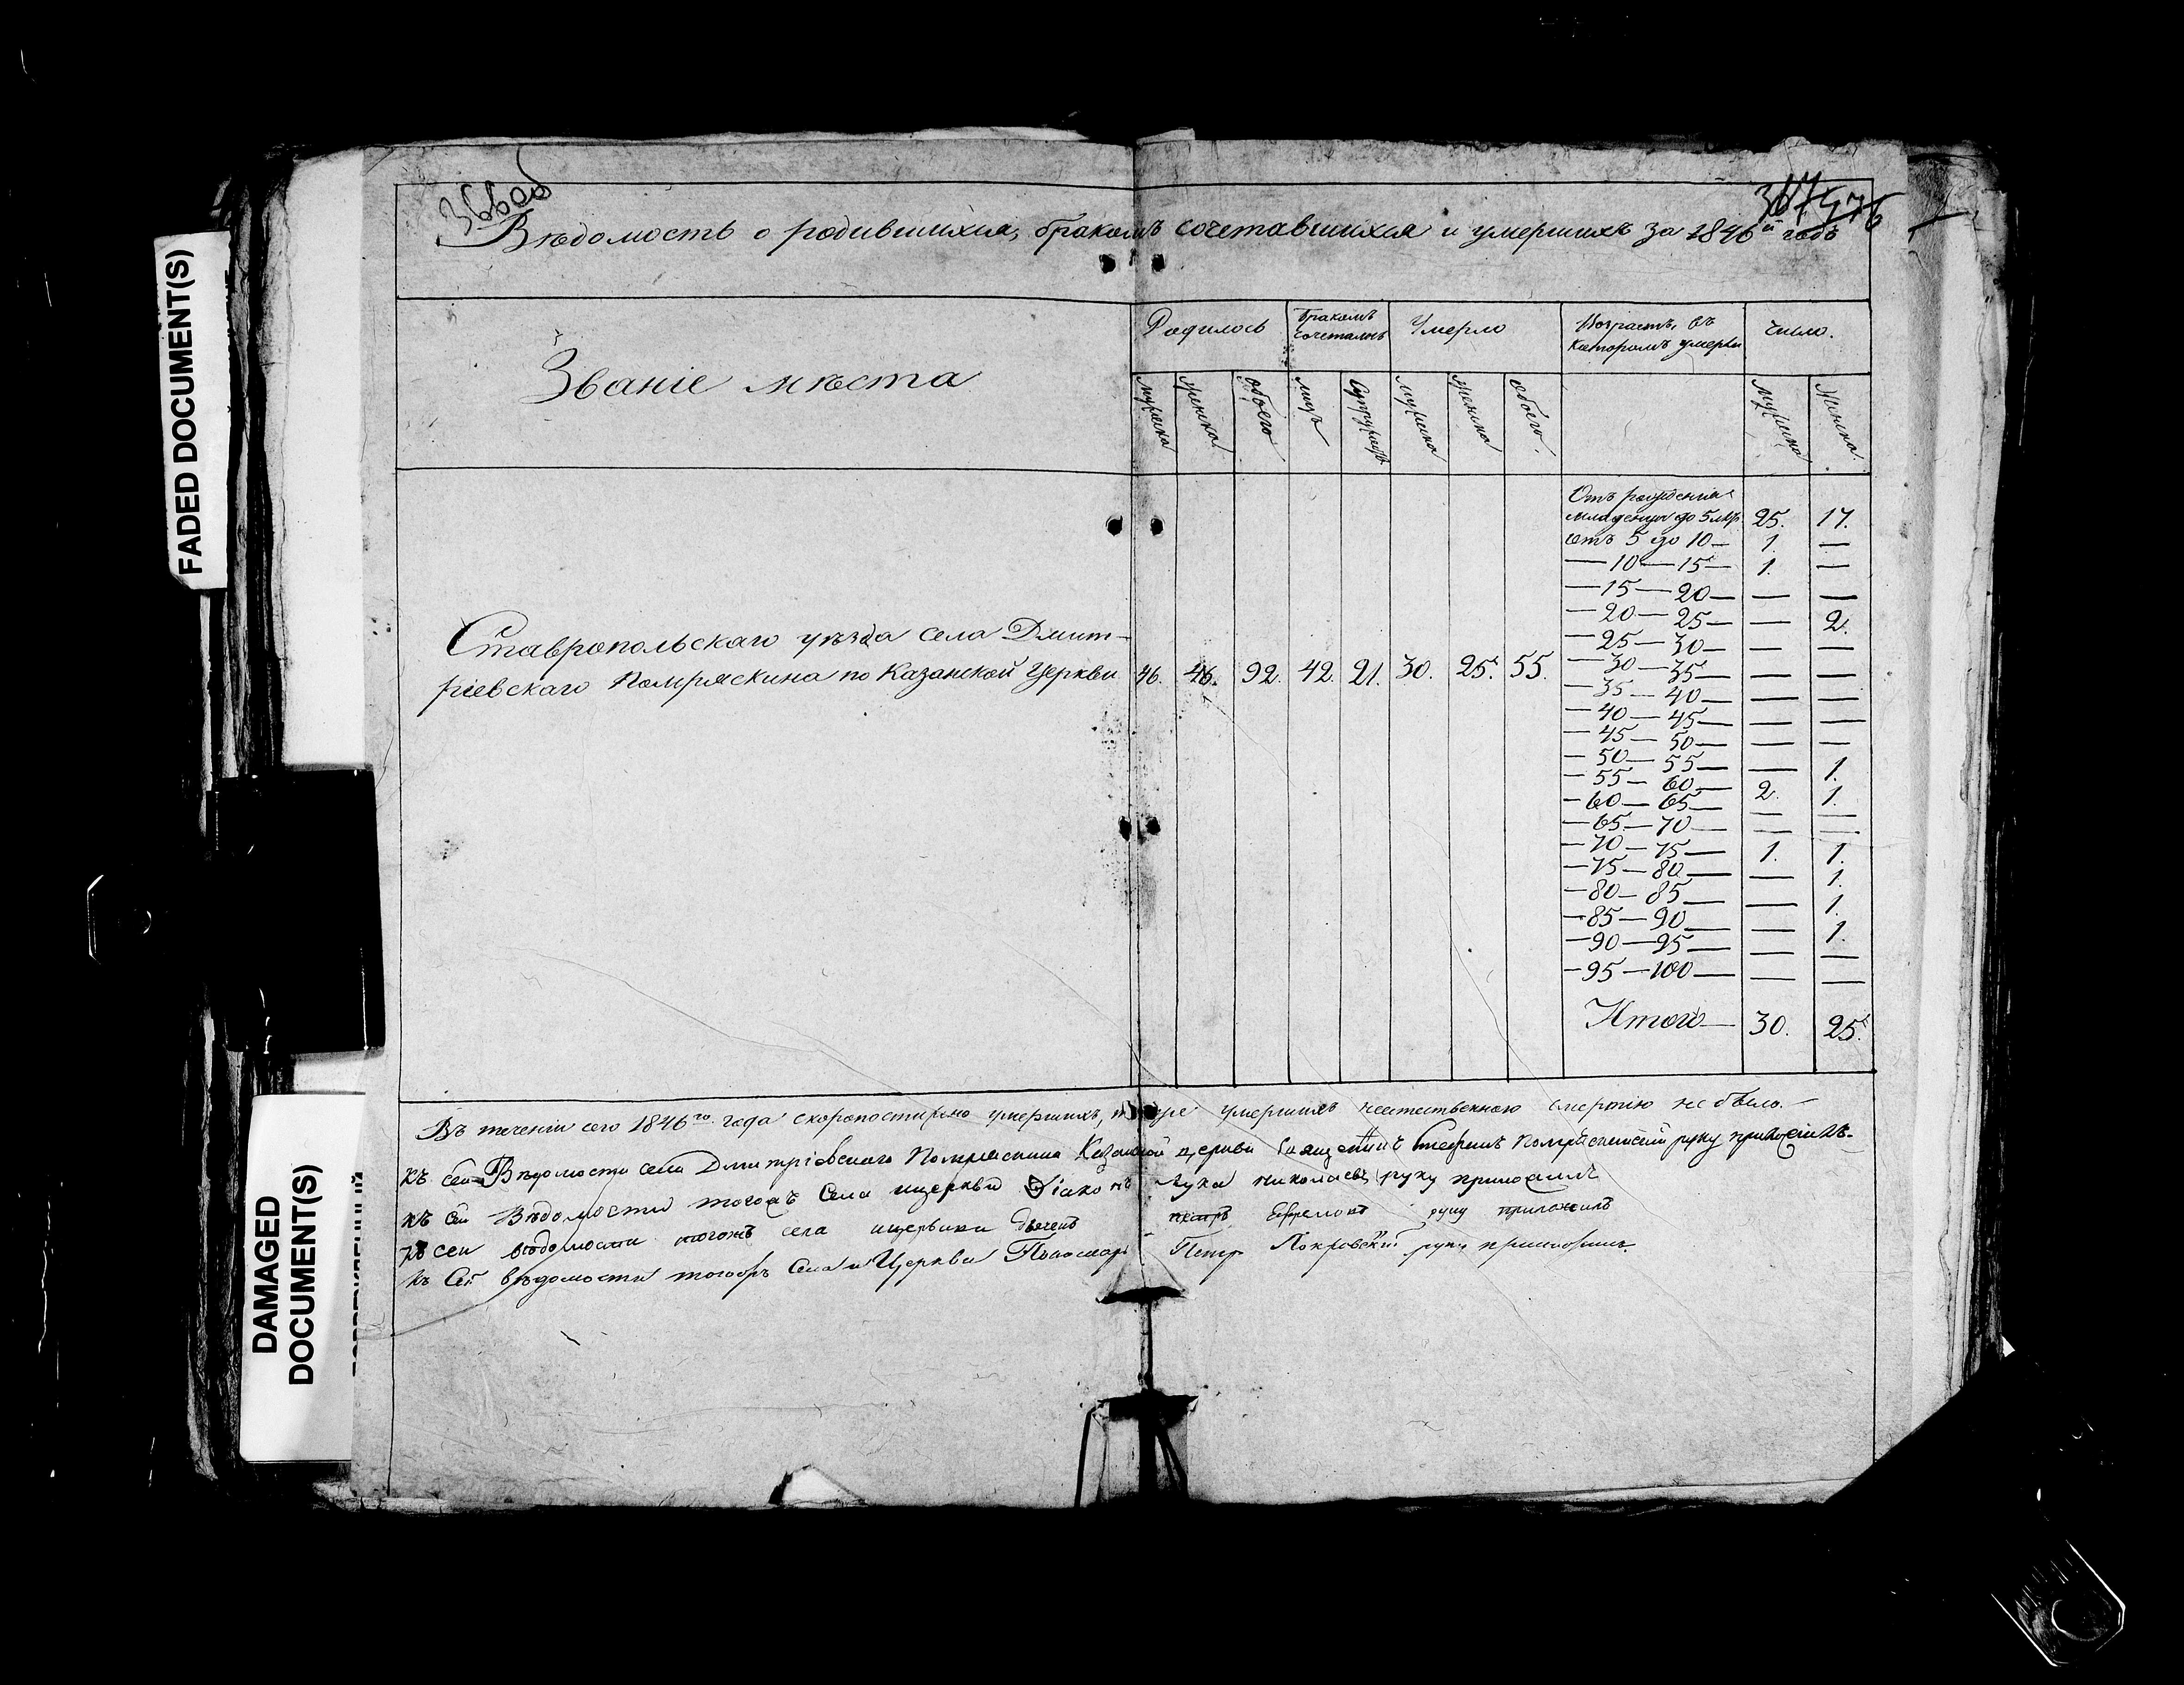 366об
367 576
Вѣдомость о родившихся, бракомъ сочетавшихся и умершихъ за 1846й годъ
Званіе мѣста
Родилось
Бракомъ сочеталось
Умерло
Возрастъ, въ которомъ умерли
Число.
мужеска
женска
обоего
лицъ
Супружествъ
мужеска
женска
обоего.
мужеска
Женска.
Ставропольскаго уѣзда села Дмит-
ріевскаго Помряскина по Казанской Церкви
46. 46. 92. 42. 21. 30. 25. 55.
Отъ рожденія
младенцы до 5 лѣтъ 25. 17.
отъ 5 до 10 — 1. —
— 10 — 15 — 1. —
— 15 — 20 — — —
— 20 — 25 — — 2.
— 25 — 30 — — —
— 30 — 35 — — —
— 35 — 40 — — —
— 40 — 45 — — —
— 45 — 50 — — —
— 50 — 55 — — 1.
— 55 — 60 — 2. 1.
— 60 — 65 — — —
— 65 — 70 — — —
— 70 — 75 — 1. 1.
— 75 — 80 — — 1.
— 80 — 85 — — 1.
— 85 — 90 — — 1.
— 90 — 95 — — —
— 95 — 100 — — —
Итого — 30. 25.
Въ теченіи сего 1846го года скоропостижно умершихъ, умершихъ неестественною смертію не было. —
Къ сей Вѣдомости села Дмитріевскаго Помряскина Казанской церкви Священникъ Стефанъ Помряскинскій руку приложилъ.
Къ сей Вѣдомости тогожъ Села и церкви Діаконъ Лука Николаевъ руку приложилъ
Къ сей вѣдомости тогожъ села и церкви дьячекъ петръ Ефремовъ руку приложилъ
Къ Сей вѣдомости тогожъ Села и Церкви Пономарь Петръ Покровскій руку приложилъ.
FADED DOCUMENT(S)
DAMAGED
DOCUMENT(S)